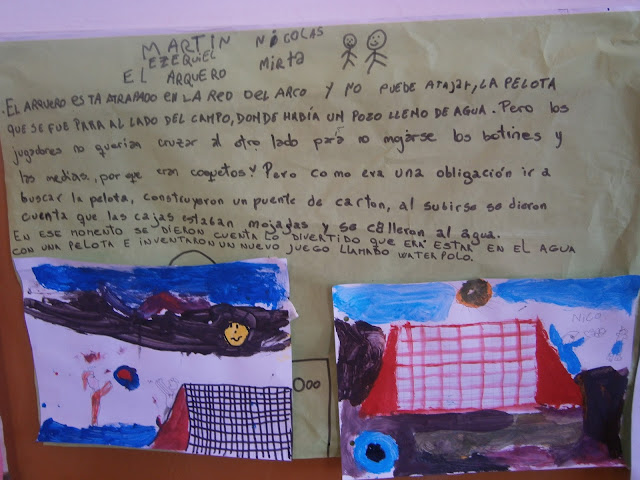 MARTIN NiCOLAS
EZEQUIEL MIRTA
EL ARQUERO
. EL ARQUERO ESTÁ ATRAPADO EN LA RED DEL ARCO Y NO PUEDE ATAJAR, LA PELOTA
QUE SE FUE PARA AL LADO DEL CAMPO, DONDE HABÍA UN POZO LLENO DE AGUA. Pero los
jugadores no querían cruzar al otro lado para no mojarse los botines y
las medias, por que eran coquetos! Pero como era una obligación ir a
buscar la pelota, construyeron un puente de carton, al subirse se dieron
cuenta que las cajas estaban mojadas y se calleron al agua.
EN ESE MOMENTO SE DIERON CUENTA LO DIVERTIDO QUE ERA ESTAR EN EL AGUA
CON UNA PELOTA E INVENTARON UN NUEVO JUEGO LLAMADO WATER POLO.
NICO